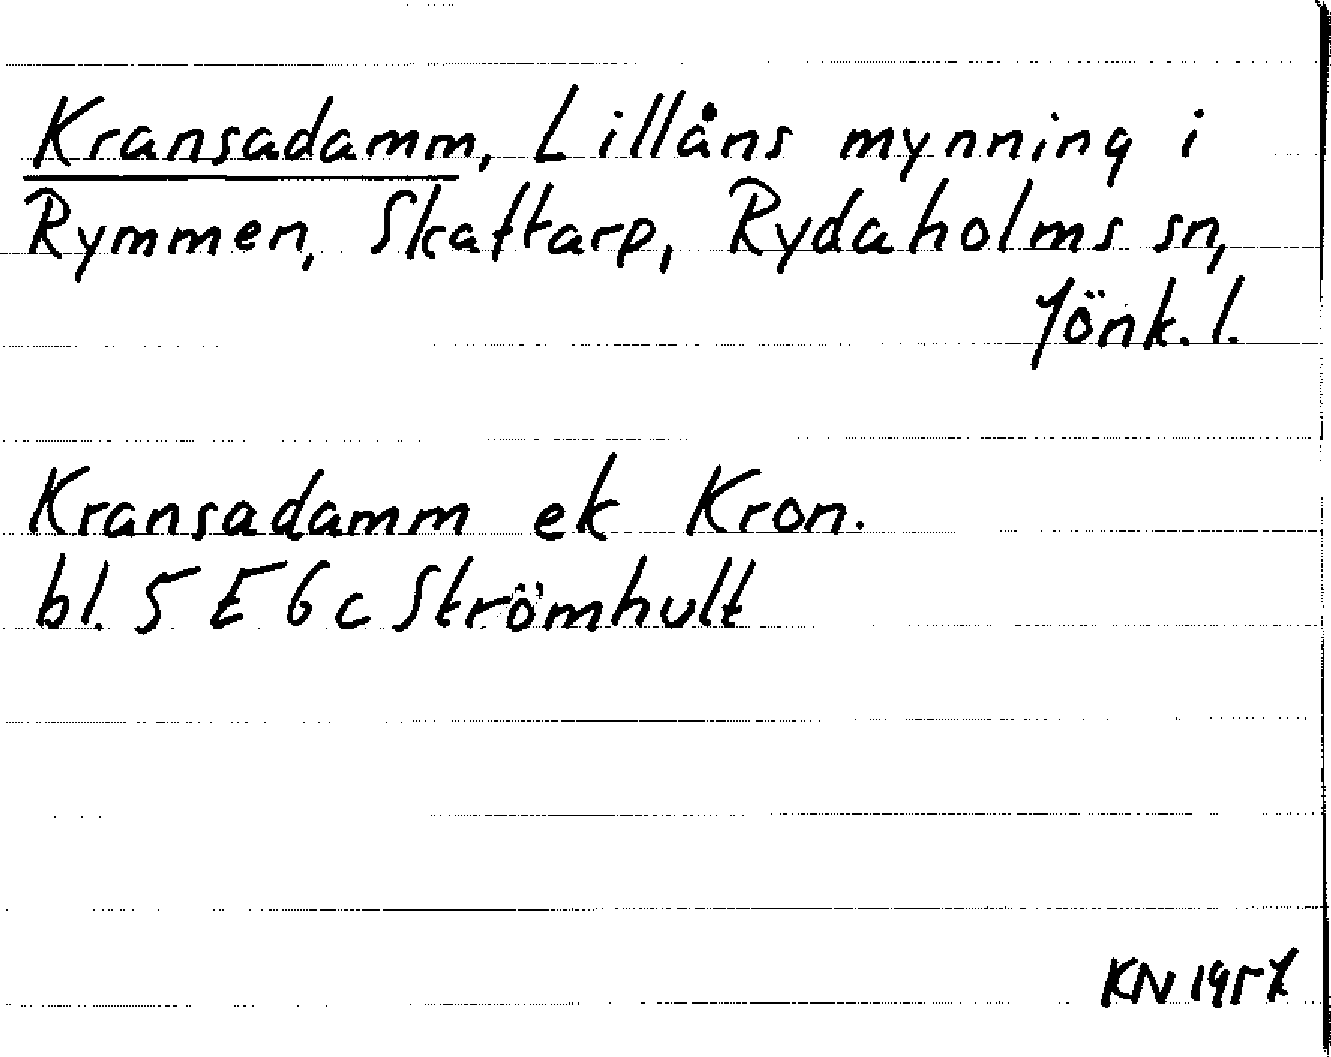 Kransadamm, Lillåns mynning i
Rymmen, Skaftarp, Rydaholms sn,
Jönk. l.
Kransadamm ek Kron.
bl. 5 E 6 c Strömhult
KN 1957